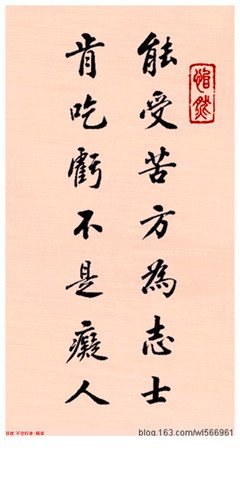 能受苦方為志士
肯吃虧不是癡人
blog.163.com/wl566961